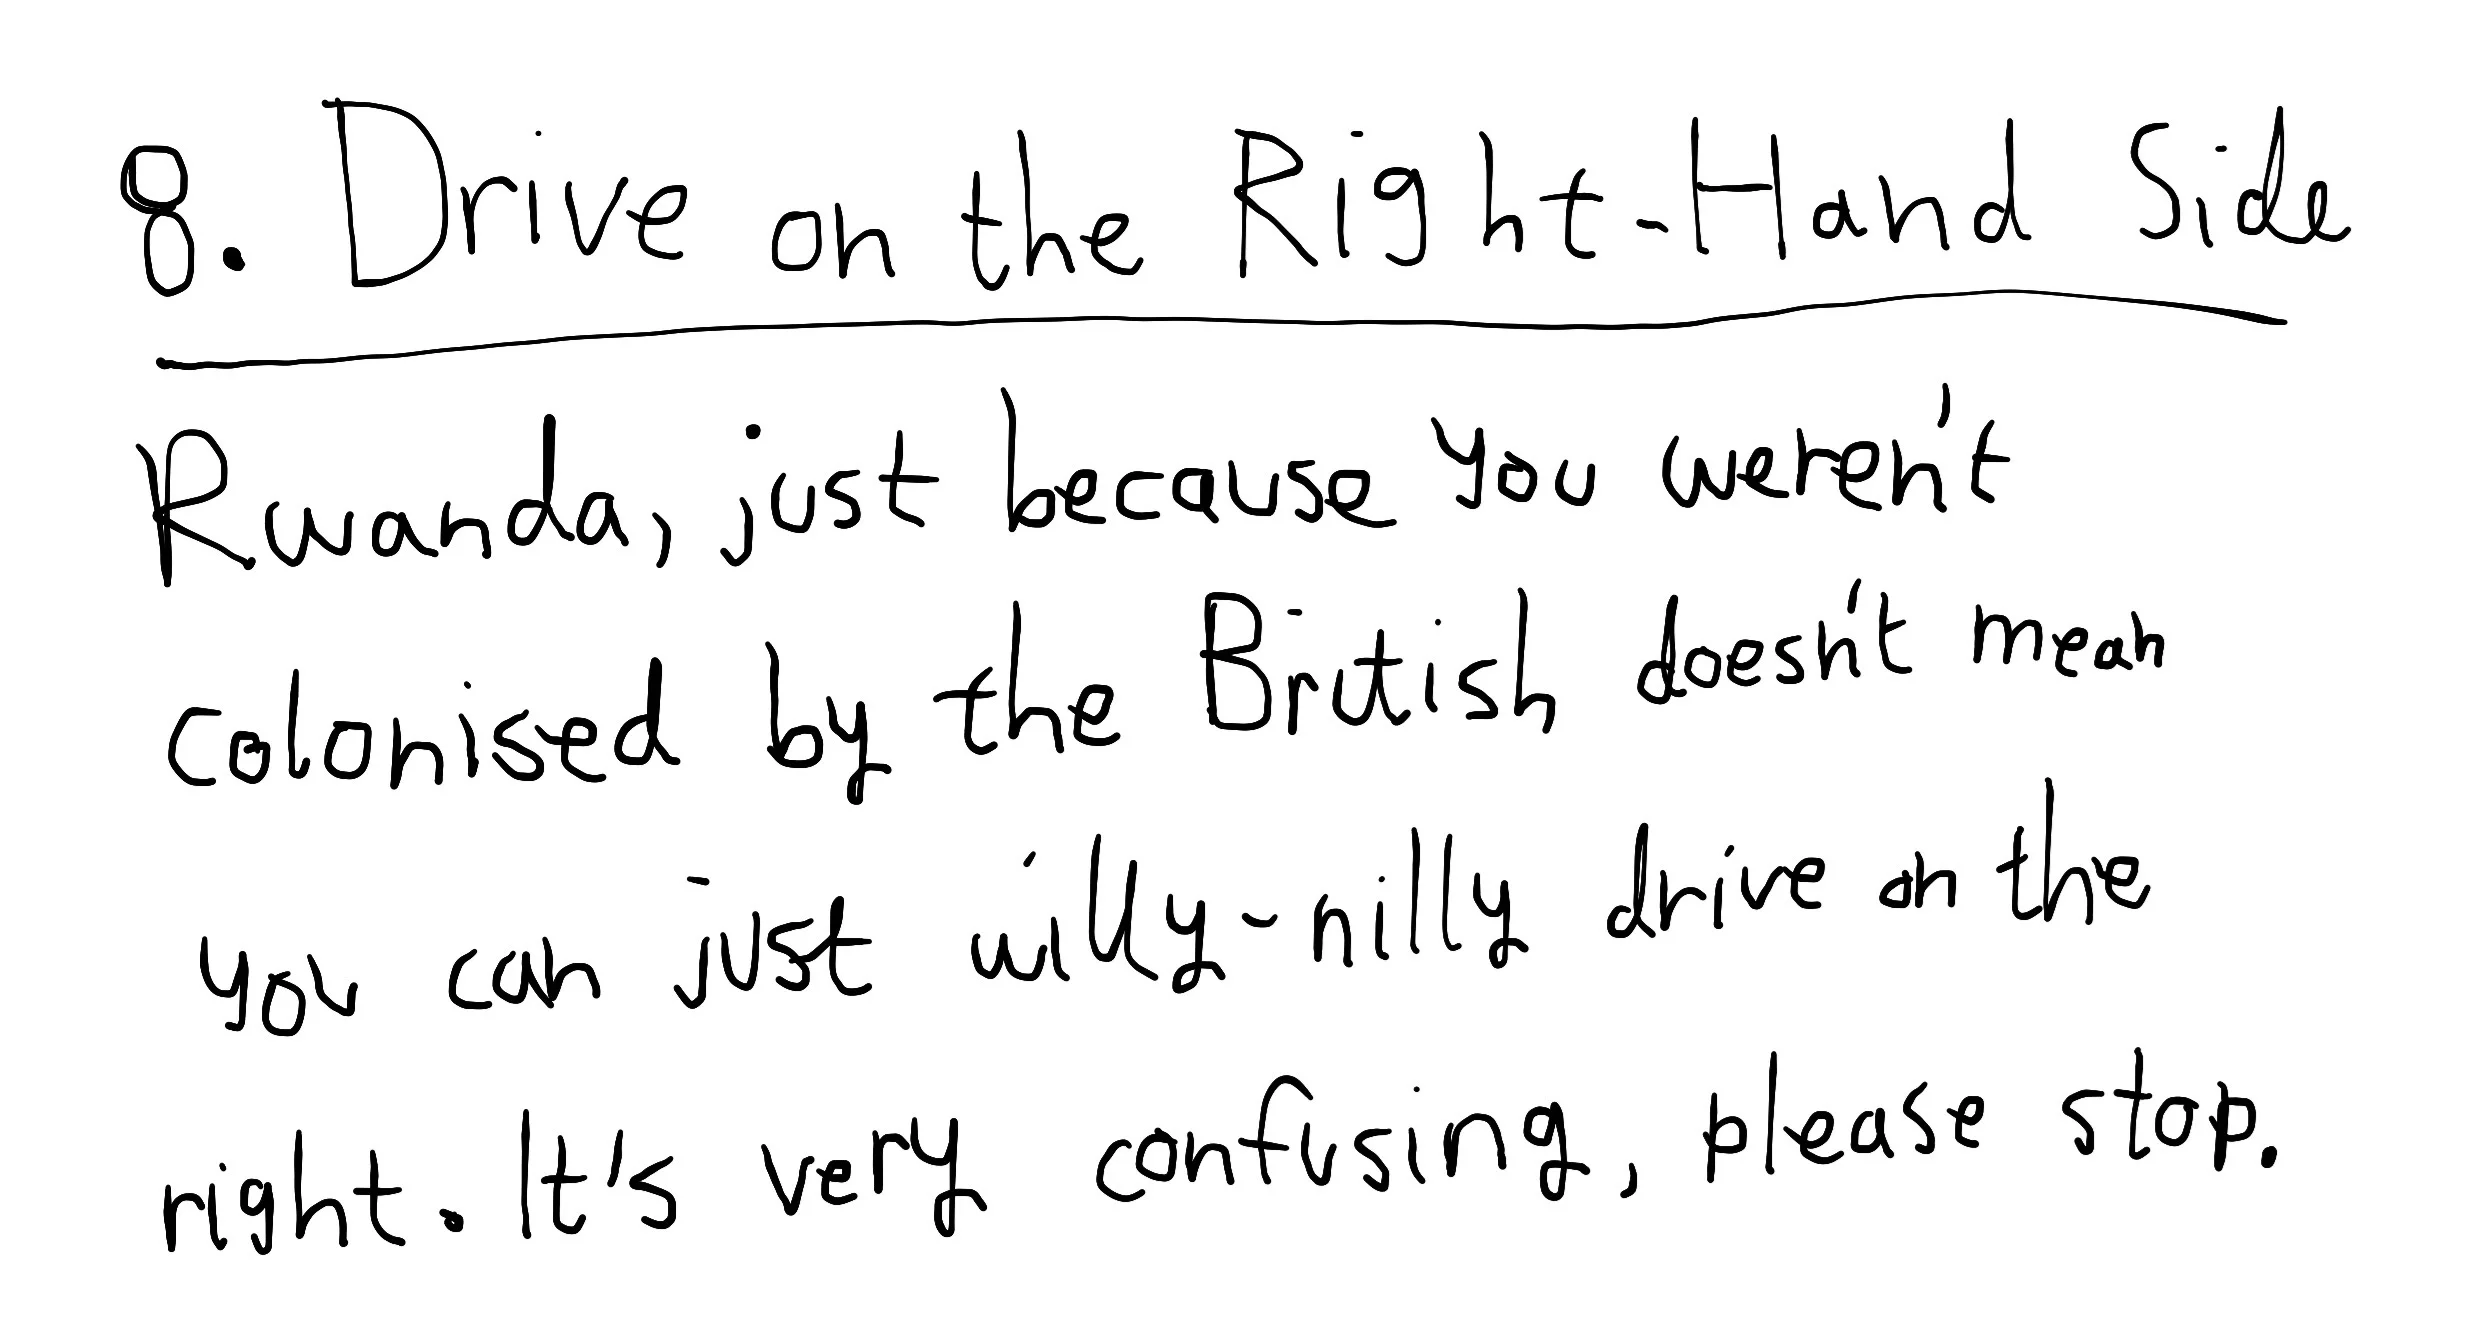 8. Drive on the Right-Hand Side
Rwanda, just because you weren't
colonised by the British doesn't mean
you can just willy-nilly drive on the
right. It's very confusing, please stop.